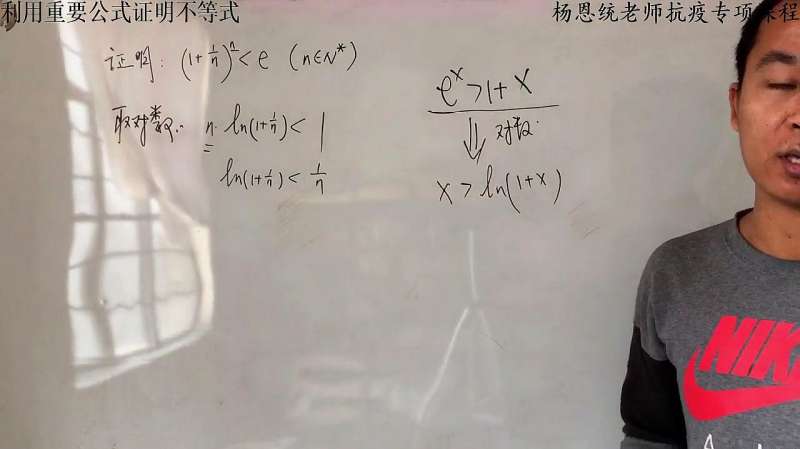 利用重要公式证明不等式
杨恩统老师抗疫专项课程
证明: (1+1/n)^n < e (n∈N*)
取对数: n·ln(1+1/n) < 1
ln(1+1/n) < 1/n
e^x > 1+x
⇓ 对数.
x > ln(1+x)
NIK